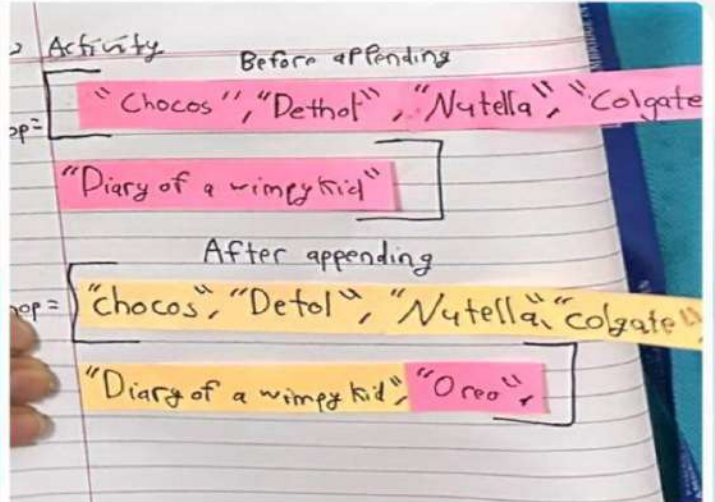 Activity
Before appending
op= [ "Chocos", "Dethol", "Nutella", "Colgate
"Diary of a wimpy kid" ]
After appending
op = [ "chocos", "Detol", "Nutella", "colgate"
"Diary of a wimpy kid", "Oreo", ]